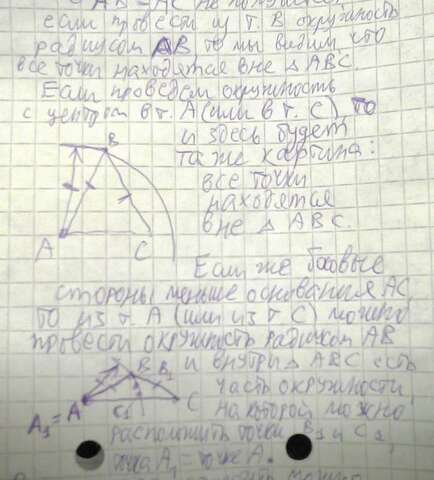 если провести из т. В окружность
радиусом АВ то мы видим что
все точки находятся вне △ АВС.
Если проведём окружность
с центром в т. А (или в т. С) то
и здесь будет
В
та же картина:
все точки
находятся
А
С
вне △ АВС.
Если же боковые
стороны меньше основания АС,
то из т. А (или из т С) можно
провести окружность радиусом АВ
В
В₁
и внутри △ АВС есть
часть окружности,
А₁=А
С₁
С
на которой можно
расположить точки В₁ и С₁,
точка А₁ = точке А.